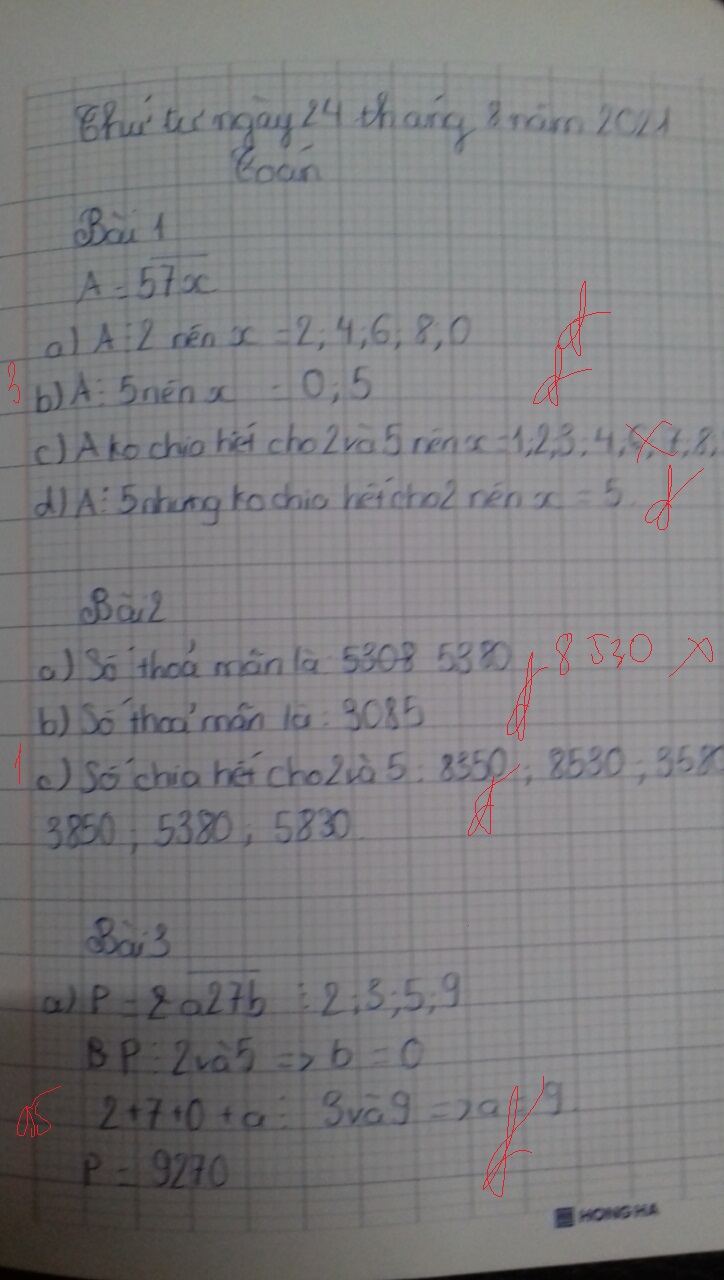 Thứ tư ngày 24 tháng 8 năm 2021
Toán
Bài 1
A = 57x
a) A ⋮ 2 nên x = 2; 4; 6; 8; 0
3
b) A ⋮ 5 nên x = 0; 5
c) A ko chia hết cho 2 và 5 nên x = 1, 2, 3, 4, 7, 8,
d) A ⋮ 5 nhưng ko chia hết cho 2 nên x = 5
đ
đ
đ
Bài 2
a) Số thoả mãn là 5308 5380 đ 8530
b) Số thoả mãn là: 3085
1
c) Số chia hết cho 2 và 5: 8350; 8530; 3580
3850; 5380; 5830
đ
Bài 3
a) P = a27b ⋮ 2; 3; 5; 9
P ⋮ 2 và 5 => b = 0
0,5
2+7+0+a ⋮ 3 và 9 => a = 9
P = 9270
đ
HONG HA